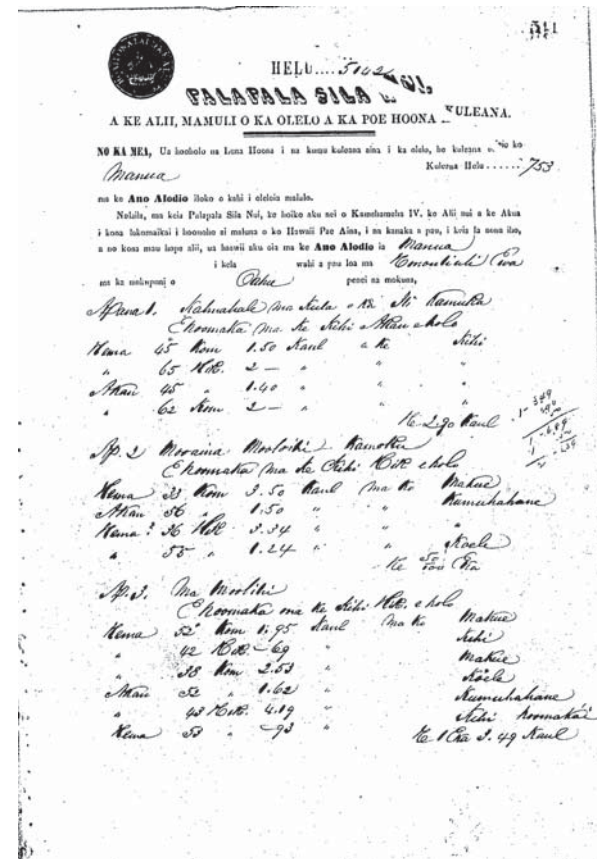 311
HELU....5142
PALAPALA SILA NUI,
A KE ALII, MAMULI O KA OLELO A KA POE HOONA KULEANA.
NO KA MEA, Ua hooholo na Luna Hoona i na kumu kuleana aina i ka olelo, he kuleana oiaio ko
Manua Kuleana Helu......753
ma ke Ano Alodio iloko o kahi i oleloia malalo.
Nolaila, ma keia Palapala Sila Nui, ke hoike aku nei o Kamehameha IV, ke Alii nui a ke Akua
i kona lokomaikai i hoonoho ai maluna o ko Hawaii Pae Aina, i na kanaka a pau, i keia la nona iho,
a no kona mau hope alii, ua haawii aku oia ma ke Ano Alodio ia Manua
i kela wahi a pau loa ma Honouliuli Ewa
ma ka mokupuni o Oahu penei na mokuna,
Apana 1. Kahuahale ma Kula o ka Ili Kamoku
E hoomaka ma ke Kihi Akau e holo
Hema 45 Kom 1.50 Kaul a ke Kihi
" 65 Hik. 2 — " " "
Akau 45 " 1.40 " " "
" 62 Kom 2 — " " "
Ke 2.90 Kaul
Ap. 2 Mooaina Mooloihi Kamoku
E hoomaka ma ke Kihi Hik e holo
Hema 33 Kom 3.50 Kaul ma ko Makue
Akau 56 " 1.50 " " Kumuhahane
Hema? 36 Hik 3.34 " " "
" 55 " 1.24 " " Koele
Ke 50/100 Eka
Ap. 3. Ma Mooloihi
E hoomaka ma ke Kihi Hik. e holo
Hema 52 Kom 1.95 Kaul ma ko Makue
" 42 Hik — 69 " Kihi
" 38 Kom 2.53 " Makue
Akau 52 " 1.62 " Koele
" 43 Hik. 4.19 " Kumuhahane
Hema 53 " — 93 " Kihi hoomakai
Ke 1 Eka 3.49 Kaul